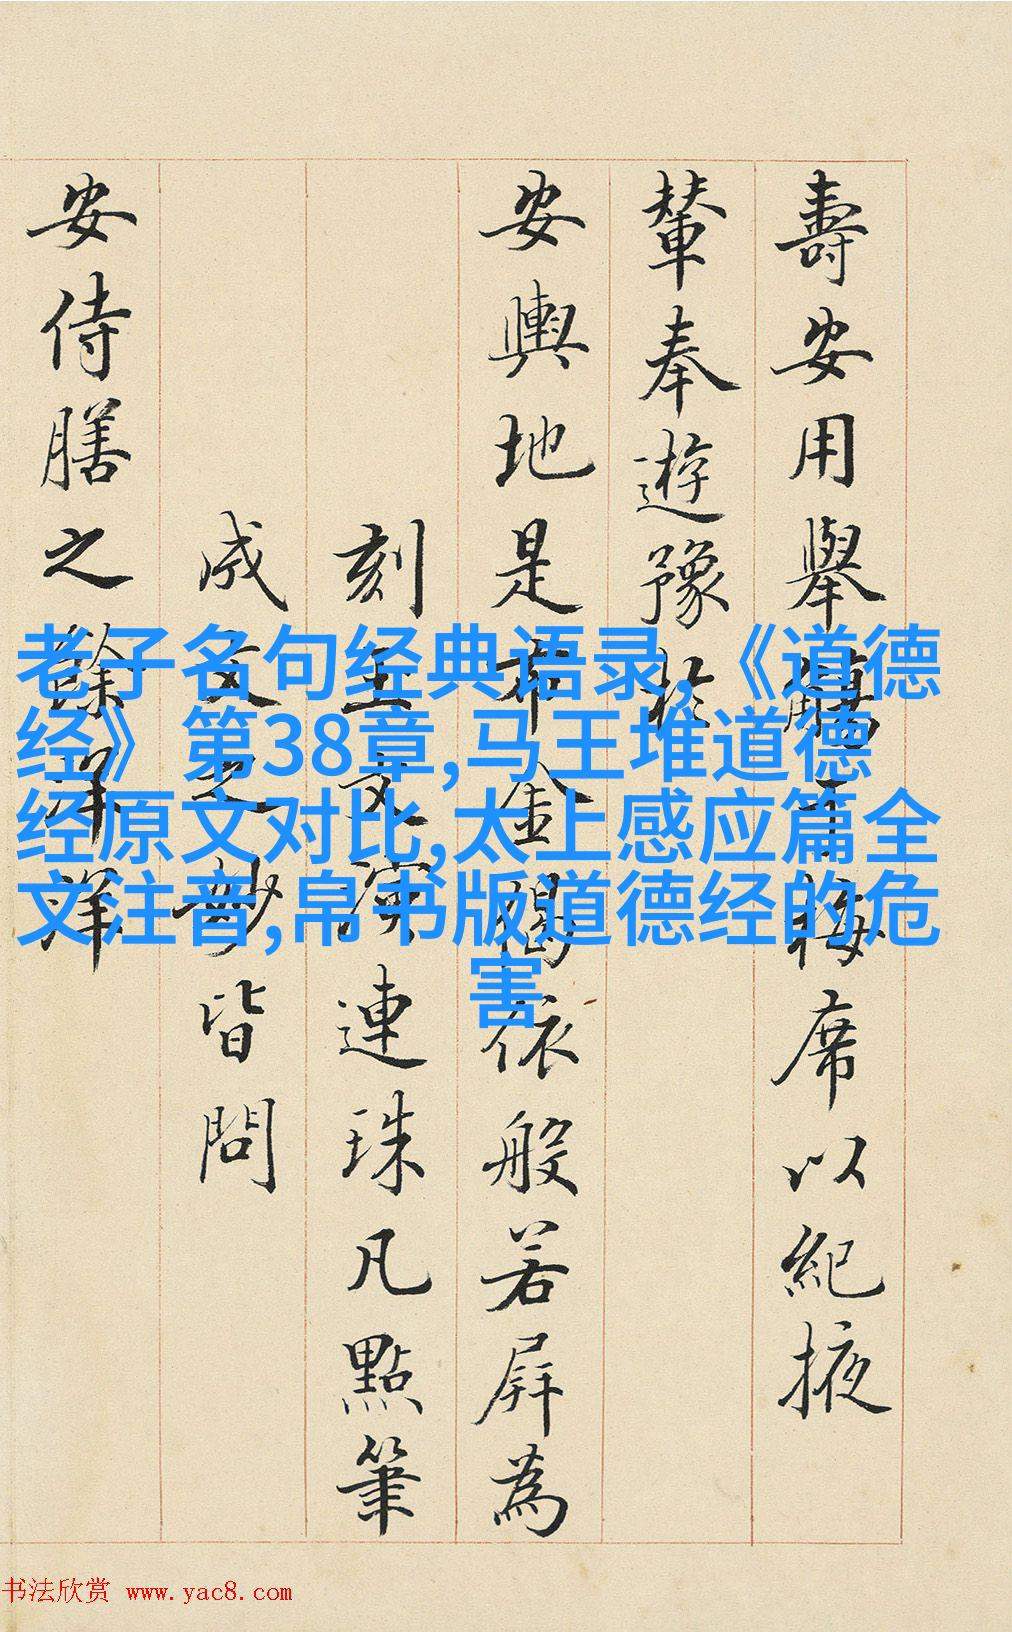 壽安用舉觴于梅席以紀掖
輦奉遊豫於
安輿地是布金偈依般若屏為
刻玉文深連珠凡點筆
成文之妙皆問
安侍膳之餘澤洋
老子名句经典语录,《道德
经》第38章,马王堆道德
经原文对比,太上感应篇全
文注音,帛书版道德经的危
害
书法欣赏 www.yac8.com